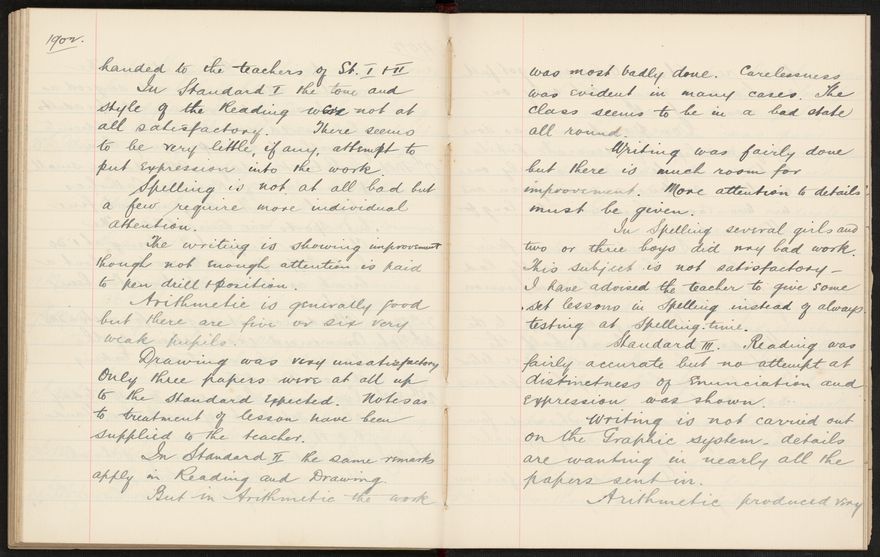 1902.
handed to the teachers of St. I & II
In Standard I the tone and
style of the Reading were not at
all satisfactory. There seems
to be very little, if any, attempt to
put expression into the work.
Spelling is not at all bad but
a few require more individual
attention.
The writing is showing improvement
though not enough attention is paid
to pen drill & position.
Arithmetic is generally good
but there are five or six very
weak pupils.
Drawing was very unsatisfactory
Only three papers were at all up
to the standard expected. Notes as
to treatment of lesson have been
supplied to the teacher.
In Standard II the same remarks
apply in Reading and Drawing.
But in Arithmetic the work
was most badly done. Carelessness
was evident in many cases. The
Class seems to be in a bad state
all round.
Writing was fairly done
but there is much room for
improvement. More attention to details
must be given.
In Spelling several girls and
two or three boys did very bad work.
This subject is not satisfactory -
I have advised the teacher to give some
set lessons in Spelling instead of always
testing at Spelling-time.
Standard III. Reading was
fairly accurate but no attempt at
distinctness of Enunciation and
Expression was shown.
Writing is not carried out
on the Graphic system - details
are wanting in nearly all the
papers sent in.
Arithmetic produced very